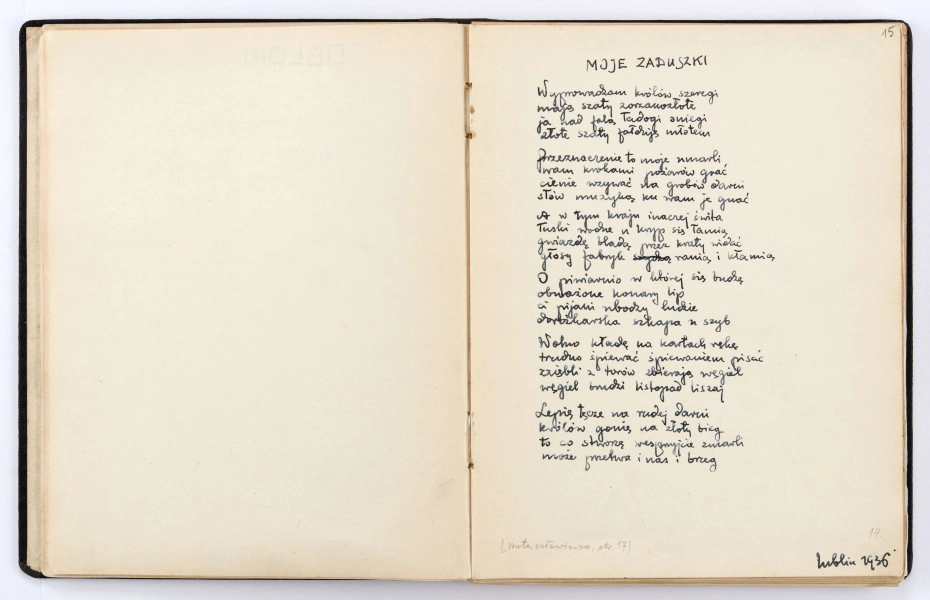 15
MOJE ZADUSZKI
Wyprowadzam królów szeregi
mają szaty zorzanozłote
ja nad falą Ładogi śniegi
złote szaty fałdziję młotem
Przeznaczenie to moje umarli
wam krokami pożarów grać
cienie wzywać na grobów darni
słów muzyką ku wam je gnać
A w tym kraju inaczej świta
łuski wodne u kryp się łamią
gwiazdę bladą przez kraty widać
głosy fabryk ranią i kłamią
O piwiarnio w której się budzę
obnażone konary lip
ci pijani ubodzy ludzie
dorożkarska szkapa u szyb
Wolno kładę na kartach rękę
trudno śpiewać śpiewaniem pisać
zziębli z torów zbierają węgiel
węgiel brudzi listopad liszaj
Lepię tęcze na rudej darni
królów gonię na złoty bieg
to co stworzę wespnijcie zmarli
może przetrwa i nas i brzeg
str. 17)
14.
Lublin 1936